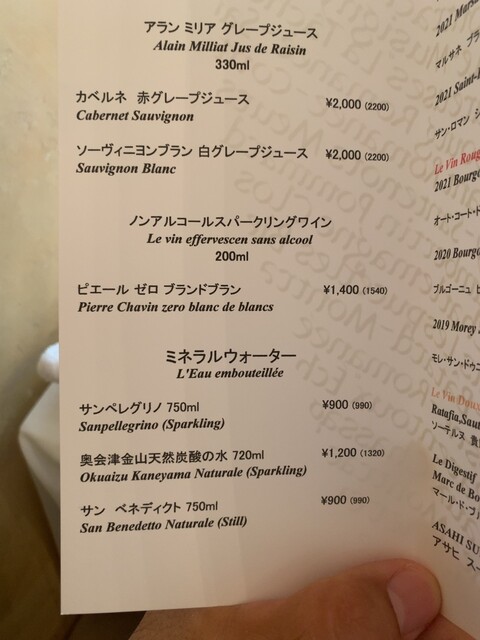 アラン ミリア グレープジュース
Alain Milliat Jus de Raisin
330ml
カベルネ 赤グレープジュース ¥2,000 (2200)
Cabernet Sauvignon
ソーヴィニヨンブラン 白グレープジュース ¥2,000 (2200)
Sauvignon Blanc
ノンアルコールスパークリングワイン
Le vin effervescen sans alcool
200ml
ピエール ゼロ ブランドブラン ¥1,400 (1540)
Pierre Chavin zero blanc de blancs
ミネラルウォーター
L'Eau embouteillée
サンペレグリノ 750ml ¥900 (990)
Sanpellegrino (Sparkling)
奥会津金山天然炭酸の水 720ml ¥1,200 (1320)
Okuaizu Kaneyama Naturale (Sparkling)
サン ベネディクト 750ml ¥900 (990)
San Benedetto Naturale (Still)
2021
マルサネ
2021 Saint-
サン・ロマン
Le Vin Roug
2021 Bourgo
オート・コート・ド
2020 Bourgo
ブルゴーニュ
2019 Morey
モレ・サン・ドゥニ
Le Vin Doux
Ratafia,Saut
ソーテルヌ 貴
Le Digestif
Marc de Bo
マール・ド・ブル
ASAHI SU
アサヒ スー